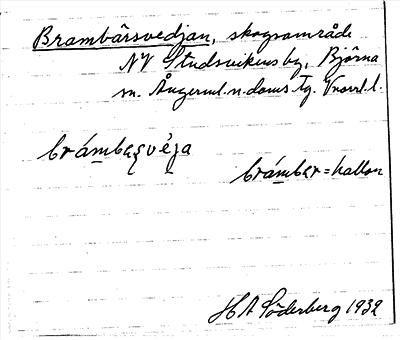 Brambärsvedjan, skogsområde
NV Studsvikens by, Björna
sn. Ångerml. n. doms. tg. Vnorrl. l.
brámbasvéja
brámbær = hallon
HA Söderberg 1932